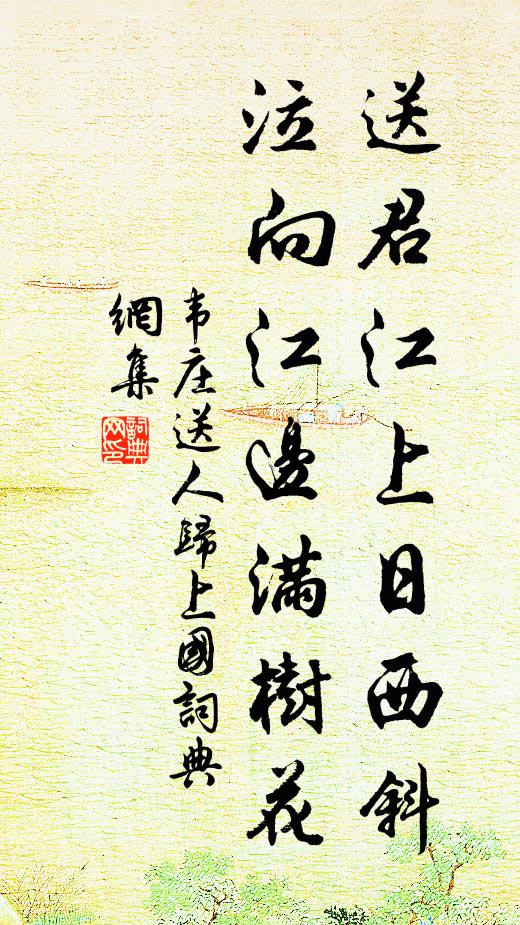 送君江上日西斜
泣向江邊滿樹花
韦庄送人歸上國詞典
網集
詞典
网印